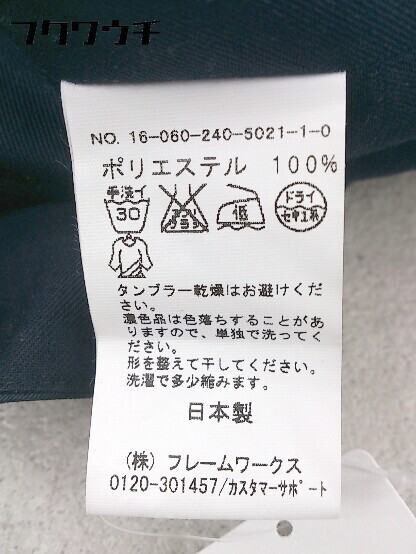 フクワウチ
NO. 16-060-240-5021-1-0
ポリエステル 100%
手洗イ
30
エンソ
サラシ
低
ドライ
セキユ系
タンブラー乾燥はお避けくだ
さい。
濃色品は色落ちすることがあ
りますので、単独で洗ってく
ださい。
形を整えて干してください。
洗濯で多少縮みます。
日本製
(株) フレームワークス
0120-301457/カスタマーサポート